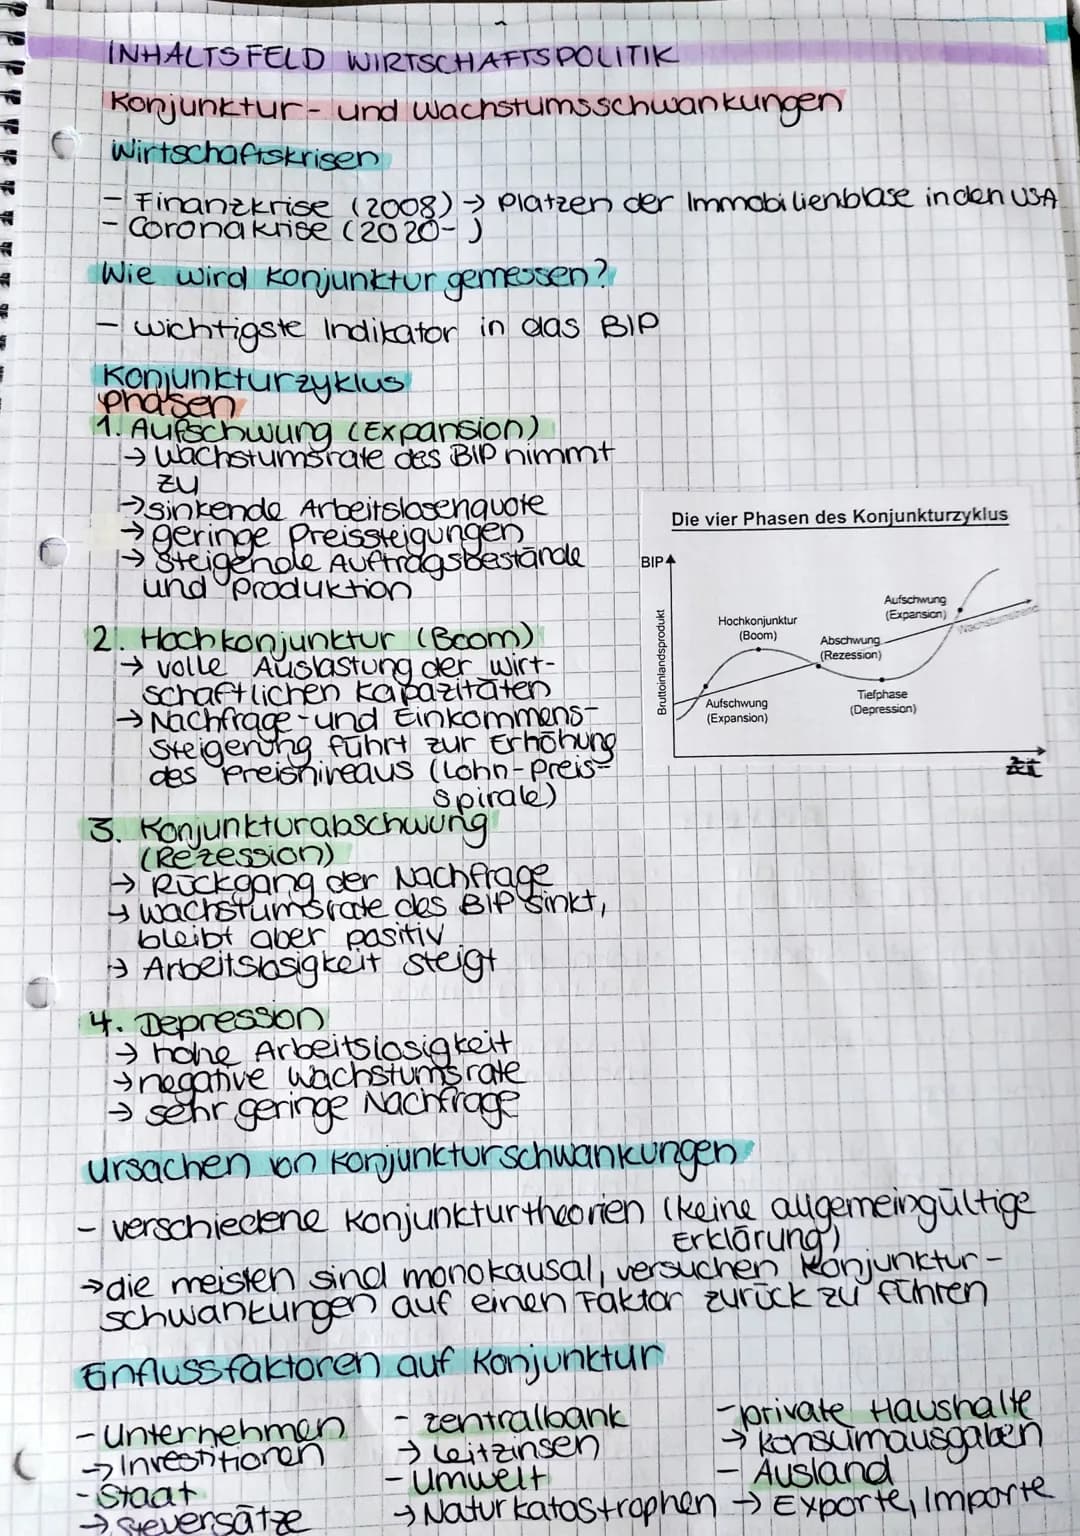 INHALTSFELD WIRTSCHAFTSPOLITIK
Konjunktur- und Wachstumsschwankungen
Wirtschaftskrisen
- Finanzkrise (2008) → Platzen der Immobilienblase in den USA
- Coronakrise (2020- )
Wie wird Konjunktur gemessen?
- wichtigste Indikator in das BIP
Konjunkturzyklus
phasen
1. Aufschwung (Expansion)
→ Wachstumsrate des BIP nimmt
zu
→ sinkende Arbeitslosenquote
→ geringe Preissteigungen
→ steigende Auftragsbestände
und Produktion
2. Hochkonjunktur (Boom)
→ volle Auslastung der wirt-
schaftlichen Kapazitäten
→ Nachfrage- und Einkommens-
steigerung führt zur Erhöhung
des Preisniveaus (Lohn-Preis-
spirale)
3. Konjunkturabschwung
(Rezession)
→ Rückgang der Nachfrage
→ Wachstumsrate des BIP sinkt,
bleibt aber positiv
→ Arbeitslosigkeit steigt
4. Depression
→ hohe Arbeitslosigkeit
→ negative Wachstumsrate
→ sehr geringe Nachfrage
Die vier Phasen des Konjunkturzyklus
BIP
Bruttoinlandsprodukt
Hochkonjunktur
(Boom)
Aufschwung
(Expansion)
Abschwung
(Rezession)
Aufschwung
(Expansion)
Wachstumstrend
Tiefphase
(Depression)
Zeit
Ursachen von Konjunkturschwankungen
- verschiedene Konjunkturtheorien (keine allgemeingültige
Erklärung)
→ die meisten sind monokausal, versuchen Konjunktur-
schwankungen auf einen Faktor zurück zu führen
Einflussfaktoren auf Konjunktur
- Unternehmen
→ Investitionen
- Staat
→ Steuersätze
- Zentralbank
→ Leitzinsen
- Umwelt
→ Naturkatastrophen
- private Haushalte
→ Konsumausgaben
- Ausland
→ Exporte, Importe